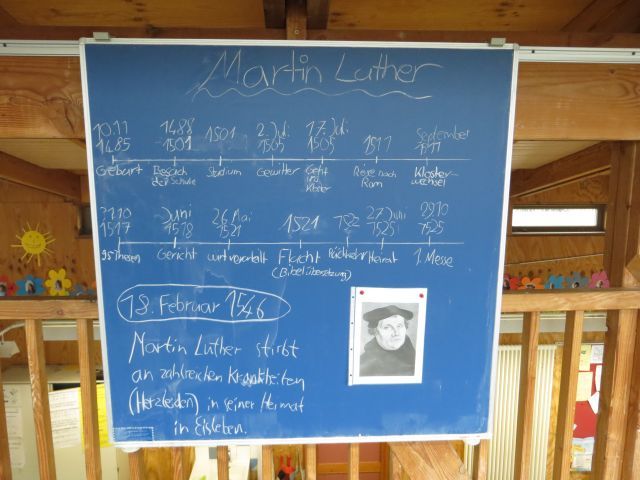 Martin Luther
10.11 1488 1501 2. Juli 17. Juli 1511 September
1485 -1501 1505 1505 1511
Geburt Besuch Studium Gewitter Geht Reise nach Kloster-
der Schule ins Rom wechsel
Kloster
31.10 Juni 26. Mai 1521 1522 27. Juni 29.10
1517 1518 1521 1525 1525
95 Thesen Gericht wird verurteilt Flucht Rückkehr Heirat 1. Messe
(Bibelübersetzung)
18. Februar 1546
Martin Luther stirbt
an zahlreichen Krankheiten
(Herzleiden) in seiner Heimat
in Eisleben.